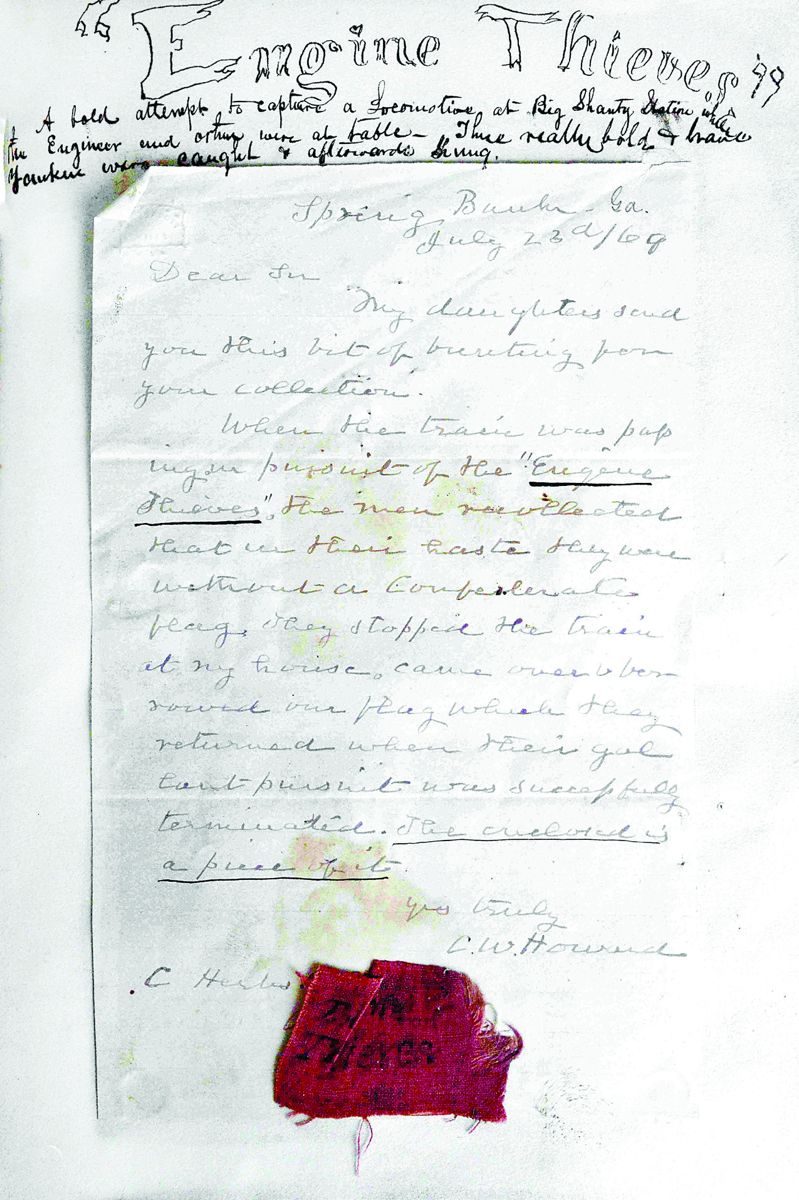 "Engine Thieves"
A bold attempt to capture a Locomotive at Big Shanty Station while
the Engineer and others were at table - These really bold & brave
Yankees were caught & afterwards hung.
Spring Bank - Ga.
July 23d/69
Dear Sir
My daughters send
you this bit of bunting for
your collection.
When the train was pass
ing in pursuit of the "Engine
Thieves", the men recollected
that in their haste they were
without a Confederate
flag. They stopped the train
at my house, came over & bor
rowed our flag which they
returned when their gal
lant pursuit was successfully
terminated. The enclosed is
a piece of it.
yrs truly
C.W. Howard
C
Engine
Thieves